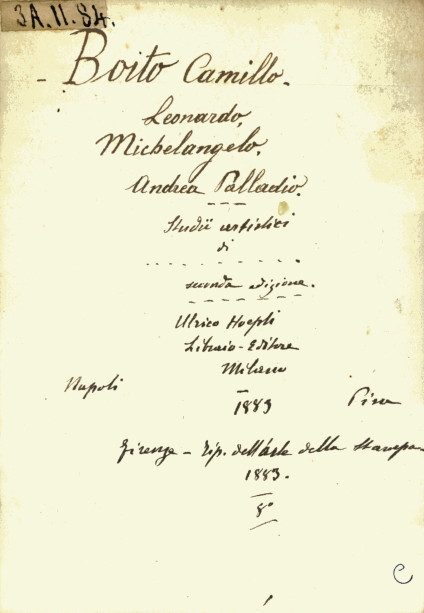 3A.11.84.
Boito Camillo.
Leonardo,
Michelangelo,
Andrea Palladio.
Studii artistici
di
seconda edizione.
Ulrico Hoepli
Libraio-Editore
Milano
Napoli 1883 Pisa
Firenze - Tip. dell'Arte della Stampa
1883.
8°
C